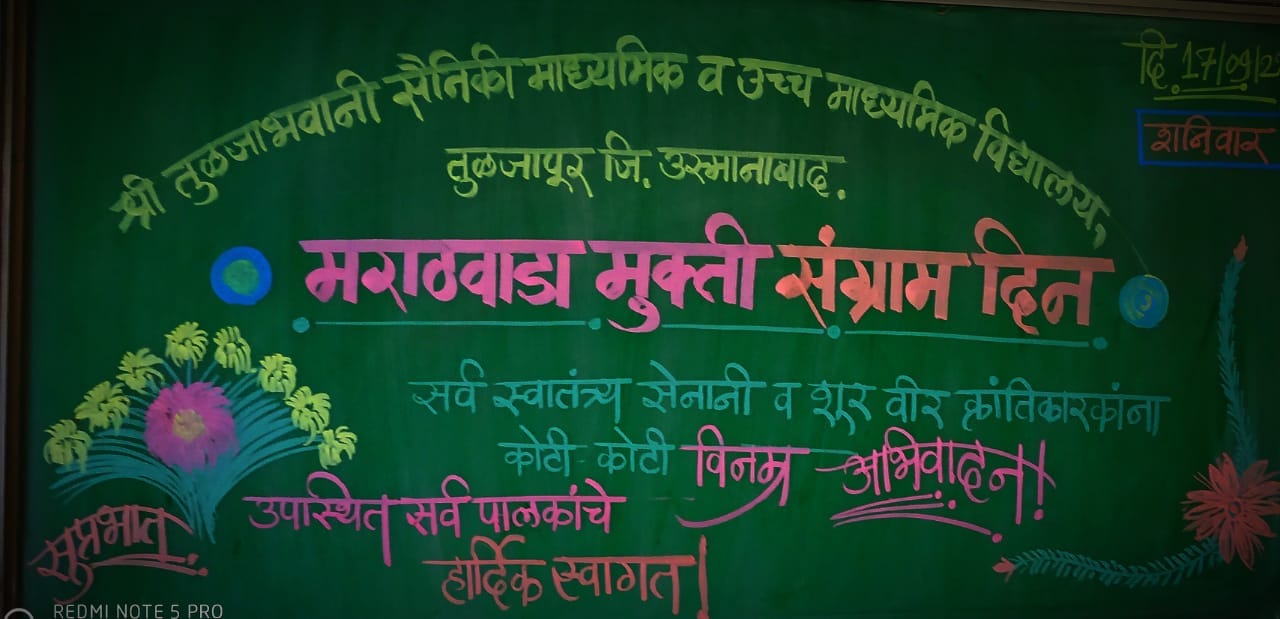 श्री तुळजाभवानी सैनिकी माध्यमिक व उच्च माध्यमिक विद्यालय,
दि 17/09/2
शनिवार
तुळजापूर जि. उस्मानाबाद.
मराठवाडा मुक्ती संग्राम दिन
सर्व स्वातंत्र्य सेनानी व शूर वीर क्रांतिकारकांना
कोटी-कोटी विनम्र अभिवादन!
उपस्थित सर्व पालकांचे
हार्दिक स्वागत!
सुप्रभात
REDMI NOTE 5 PRO